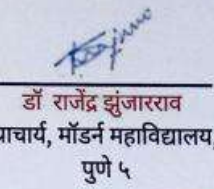 डॉ राजेंद्र झुंजारराव
प्राचार्य, मॉडर्न महाविद्यालय,
पुणे ५